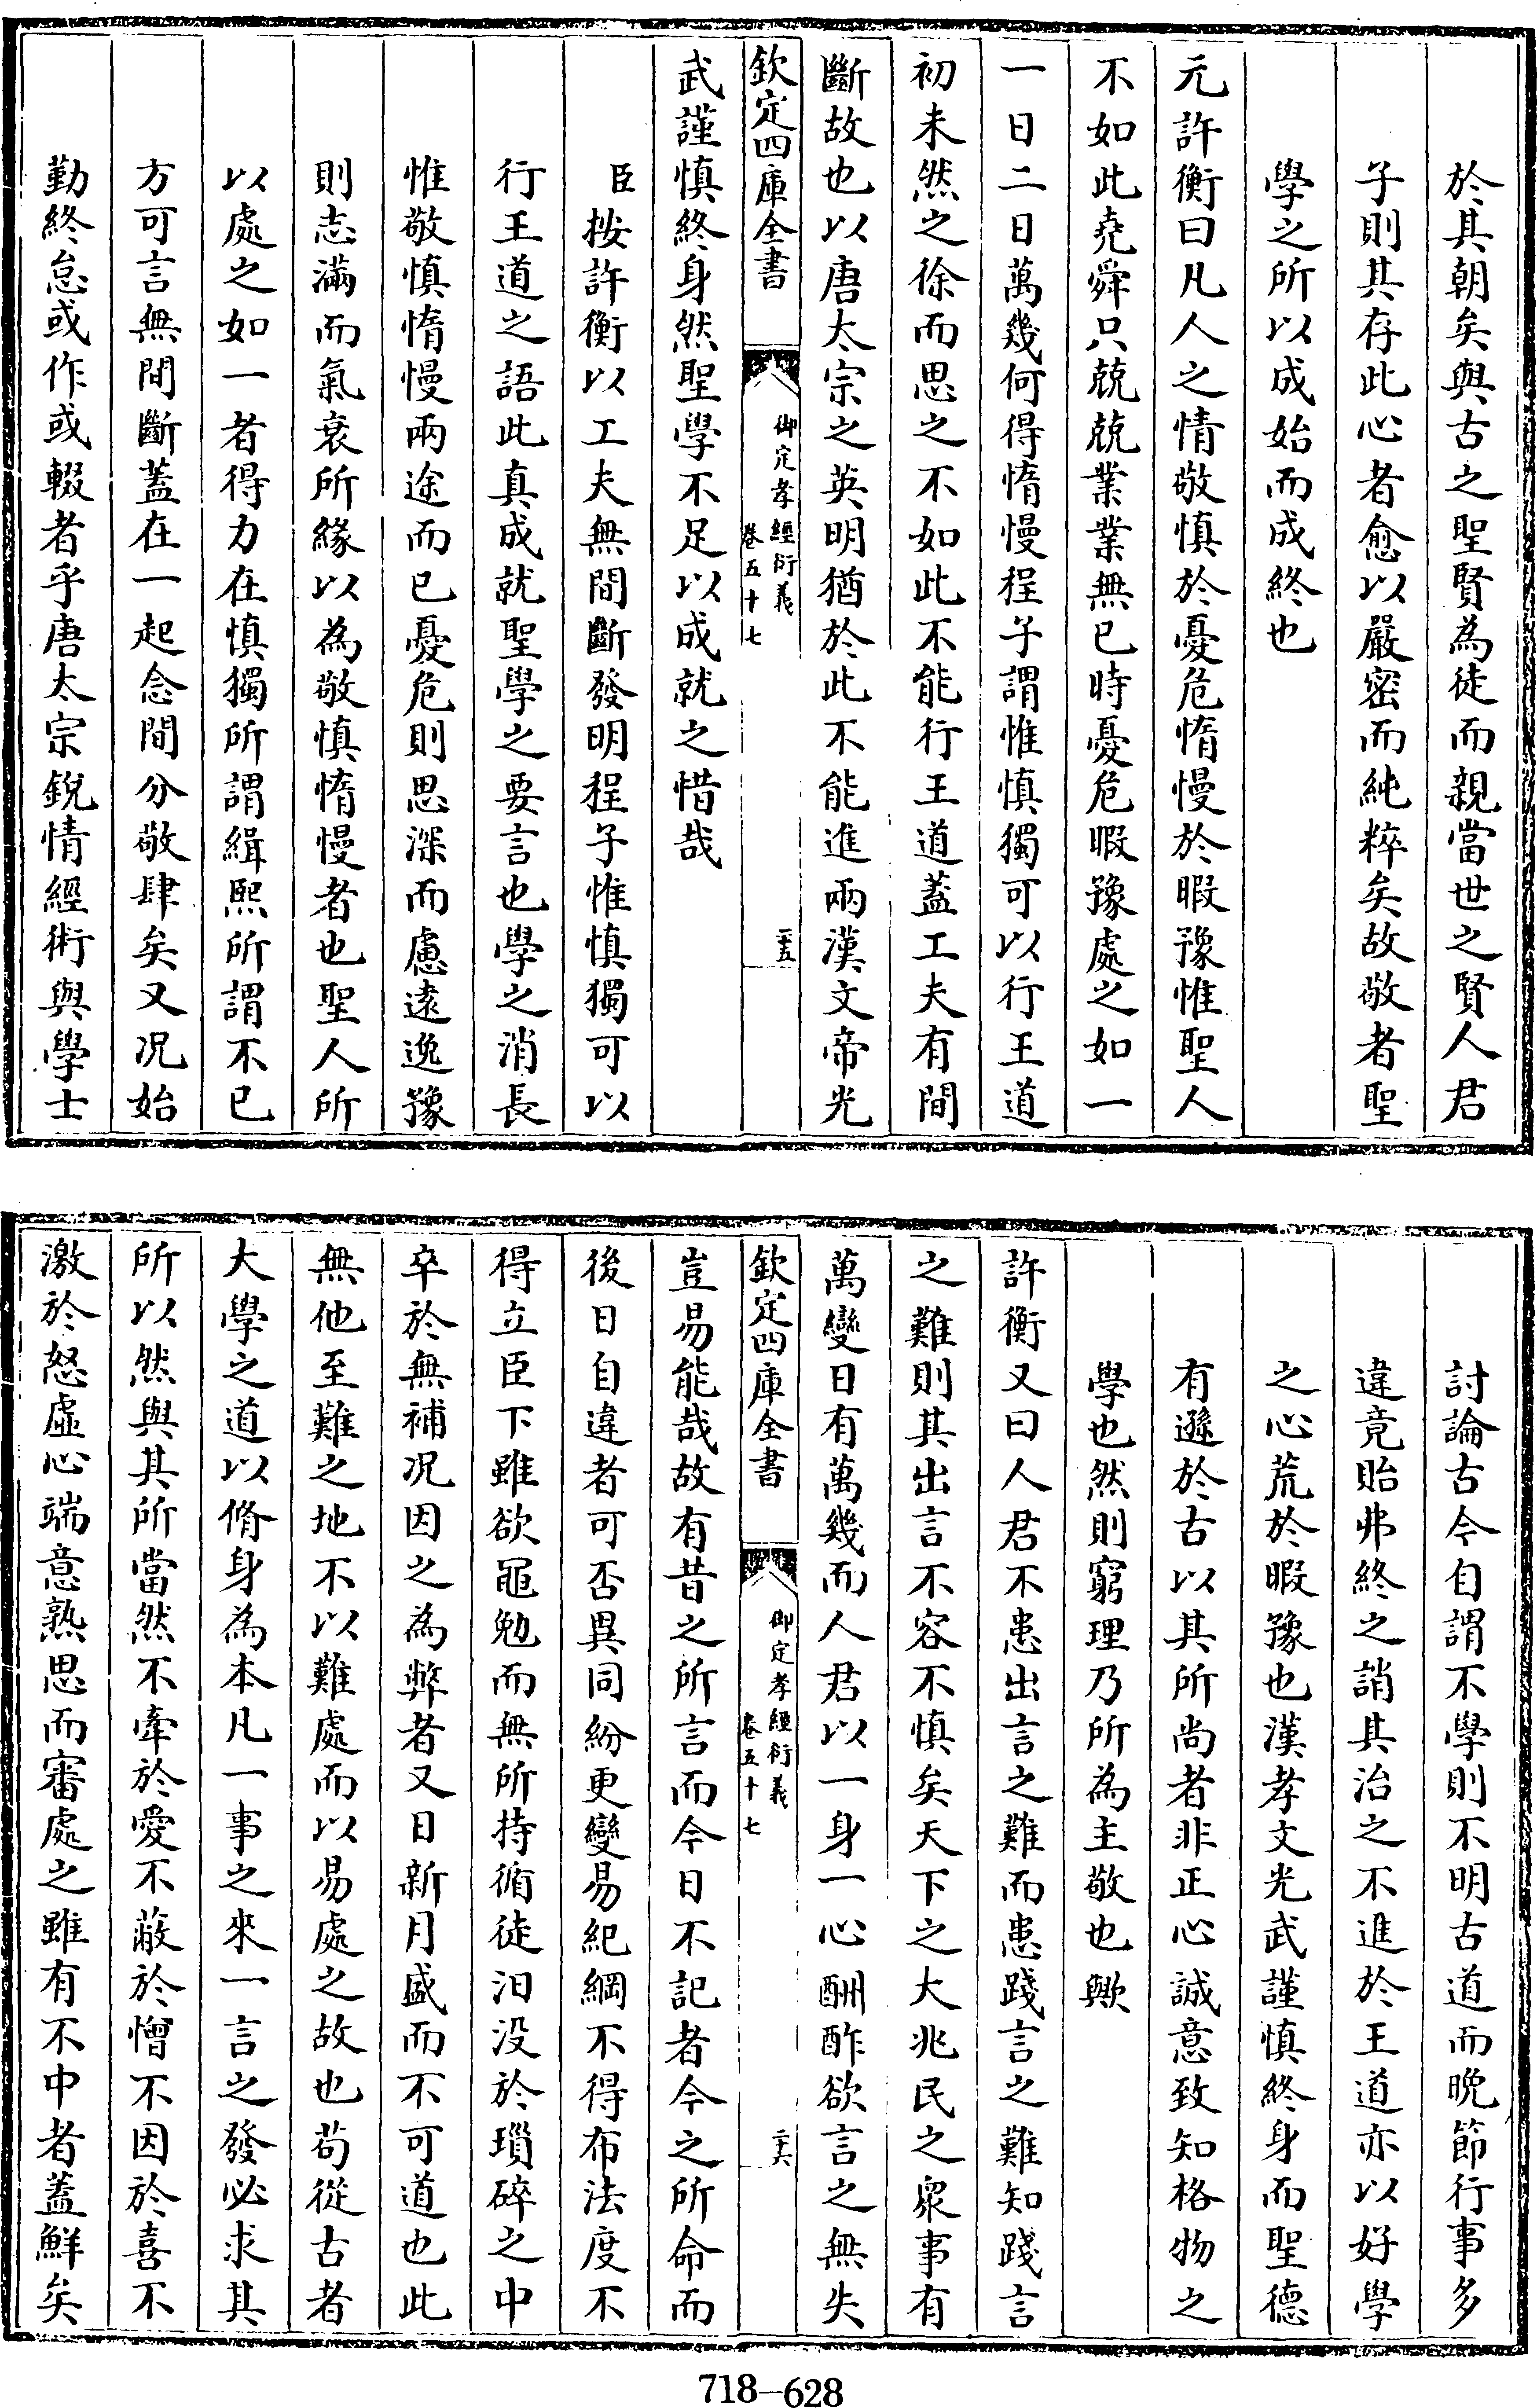 於其朝矣與古之聖賢為徒而親當世之賢人君
子則其存此心者愈以嚴密而純粹矣故敬者聖
學之所以成始而成終也
元許衡曰凡人之情敬慎於憂危惰慢於暇豫惟聖人
不如此堯舜只兢兢業業無已時憂危暇豫處之如一
一日二日萬幾何得惰慢程子謂惟慎獨可以行王道
初未然之徐而思之不如此不能行王道蓋工夫有間
斷故也以唐太宗之英明猶於此不能進兩漢文帝光
欽定四庫全書
御定孝經衍義
卷五十七
二十五
武謹慎終身然聖學不足以成就之惜哉
臣按許衡以工夫無間斷發明程子惟慎獨可以
行王道之語此真成就聖學之要言也學之消長
惟敬慎惰慢兩途而已憂危則思深而慮遠逸豫
則志滿而氣衰所緣以為敬慎惰慢者也聖人所
以處之如一者得力在慎獨所謂緝熙所謂不已
方可言無間斷蓋在一起念間分敬肆矣又況始
勤終怠或作或輟者乎唐太宗銳情經術與學士
討論古今自謂不學則不明古道而晩節行事多
違竟貽弗終之誚其治之不進於王道亦以好學
之心荒於暇豫也漢孝文光武謹慎終身而聖德
有遜於古以其所尚者非正心誠意致知格物之
學也然則窮理乃所為主敬也歟
許衡又曰人君不患出言之難而患踐言之難知踐言
之難則其出言不容不慎矣天下之大兆民之眾事有
萬變日有萬幾而人君以一身一心酬酢欲言之無失
欽定四庫全書
御定孝經衍義
卷五十七
二十六
豈易能哉故有昔之所言而今日不記者今之所命而
後日自違者可否異同紛更變易紀綱不得布法度不
得立臣下雖欲黽勉而無所持循徒汨没於瑣碎之中
卒於無補况因之為弊者又日新月盛而不可道也此
無他至難之地不以難處而以易處之故也茍從古者
大學之道以脩身為本凡一事之來一言之發必求其
所以然與其所當然不牽於愛不蔽於憎不因於喜不
激於怒虛心端意熟思而審處之雖有不中者蓋鮮矣
718-628